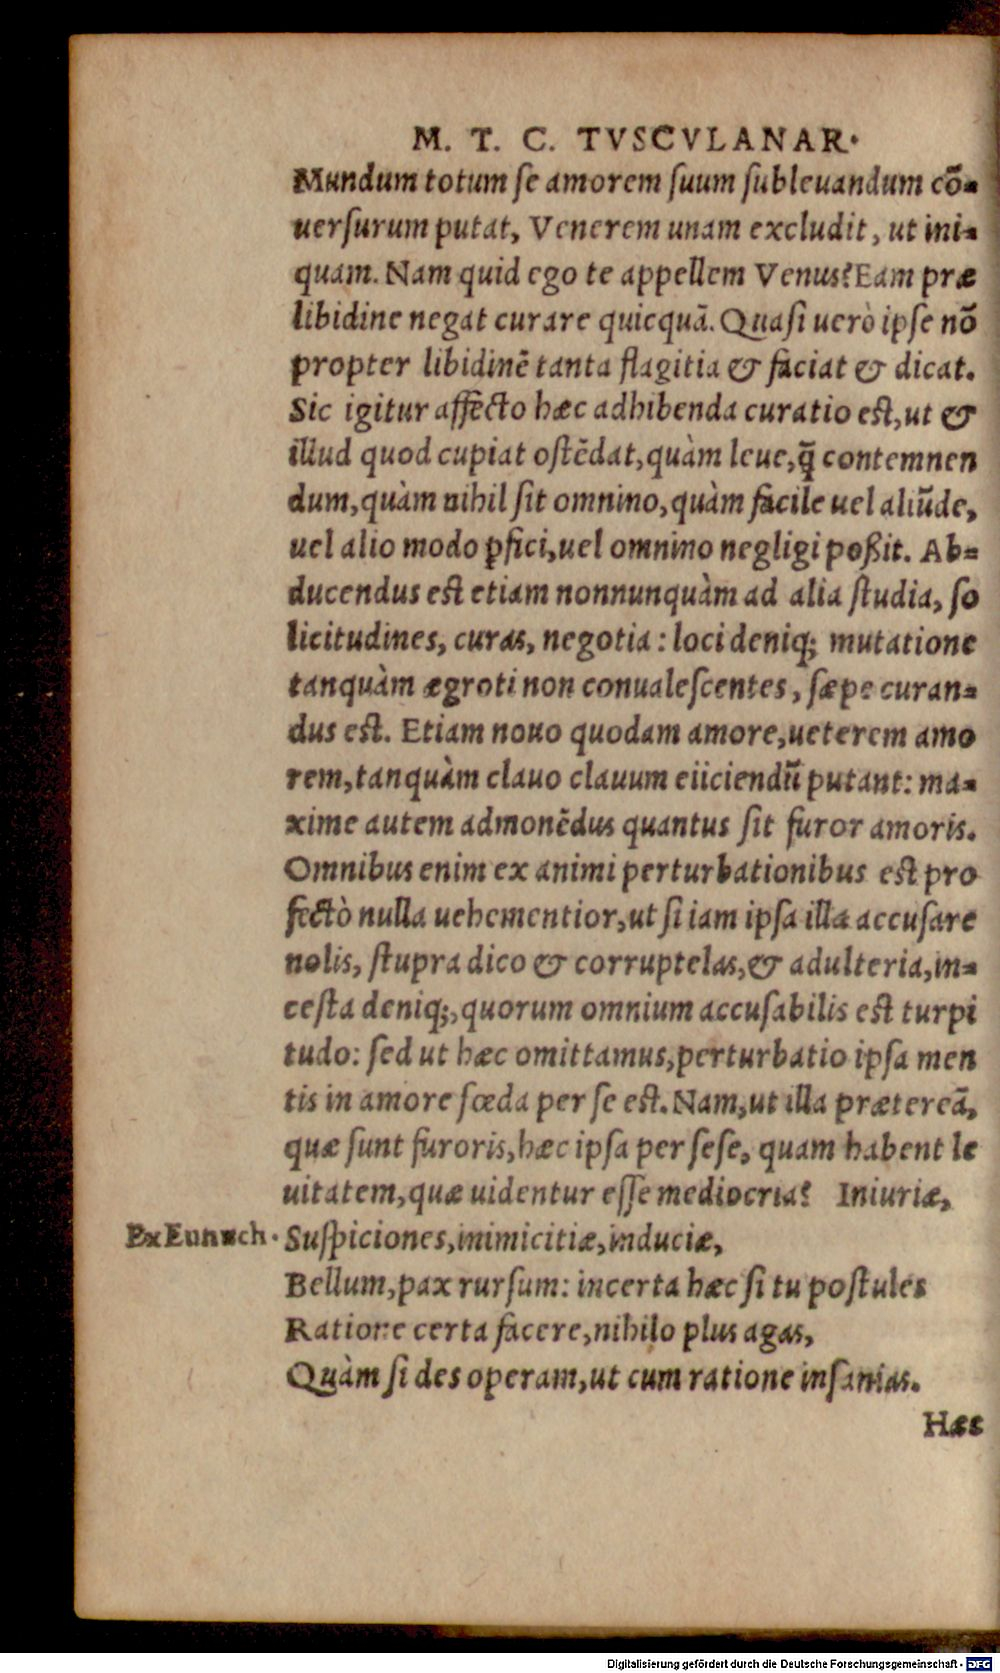 M. T. C. TVSCVLANAR.
Mundum totum se amorem suum subleuandum cō-
uersurum putat, Venerem unam excludit, ut ini-
quam. Nam quid ego te appellem Venus? Eam præ
libidine negat curare quicquā. Quasi uerò ipse nō
propter libidinē tanta flagitia & faciat & dicat.
Sic igitur affecto hæc adhibenda curatio est, ut &
illud quod cupiat ostēdat, quàm leue, q̃ contemnen
dum, quàm nihil sit omnino, quàm facile uel aliūde,
uel alio modo ꝑfici, uel omnino negligi poßit. Ab-
ducendus est etiam nonnunquàm ad alia studia, so
licitudines, curas, negotia: loci deniq; mutatione
tanquàm ægroti non conualescentes, sæpe curan-
dus est. Etiam nouo quodam amore, ueterem amo
rem, tanquàm clauo clauum eiiciendū putant: ma-
xime autem admonēdus quantus sit furor amoris.
Omnibus enim ex animi perturbationibus est pro
fectò nulla uehementior, ut si iam ipsa illa accusare
nolis, stupra dico & corruptelas, & adulteria, in-
cesta deniq;, quorum omnium accusabilis est turpi
tudo: sed ut hæc omittamus, perturbatio ipsa men
tis in amore fœda per se est. Nam, ut illa prætereā,
quæ sunt furoris, hæc ipsa per sese, quam habent le
uitatem, quæ uidentur esse mediocria? Iniuriæ,
Ex Eunuch. Suspiciones, inimicitiæ, induciæ,
Bellum, pax rursum: incerta hæc si tu postules
Ratione certa facere, nihilo plus agas,
Quàm si des operam, ut cum ratione insanias.
Hæc
Digitalisierung gefördert durch die Deutsche Forschungsgemeinschaft - DFG